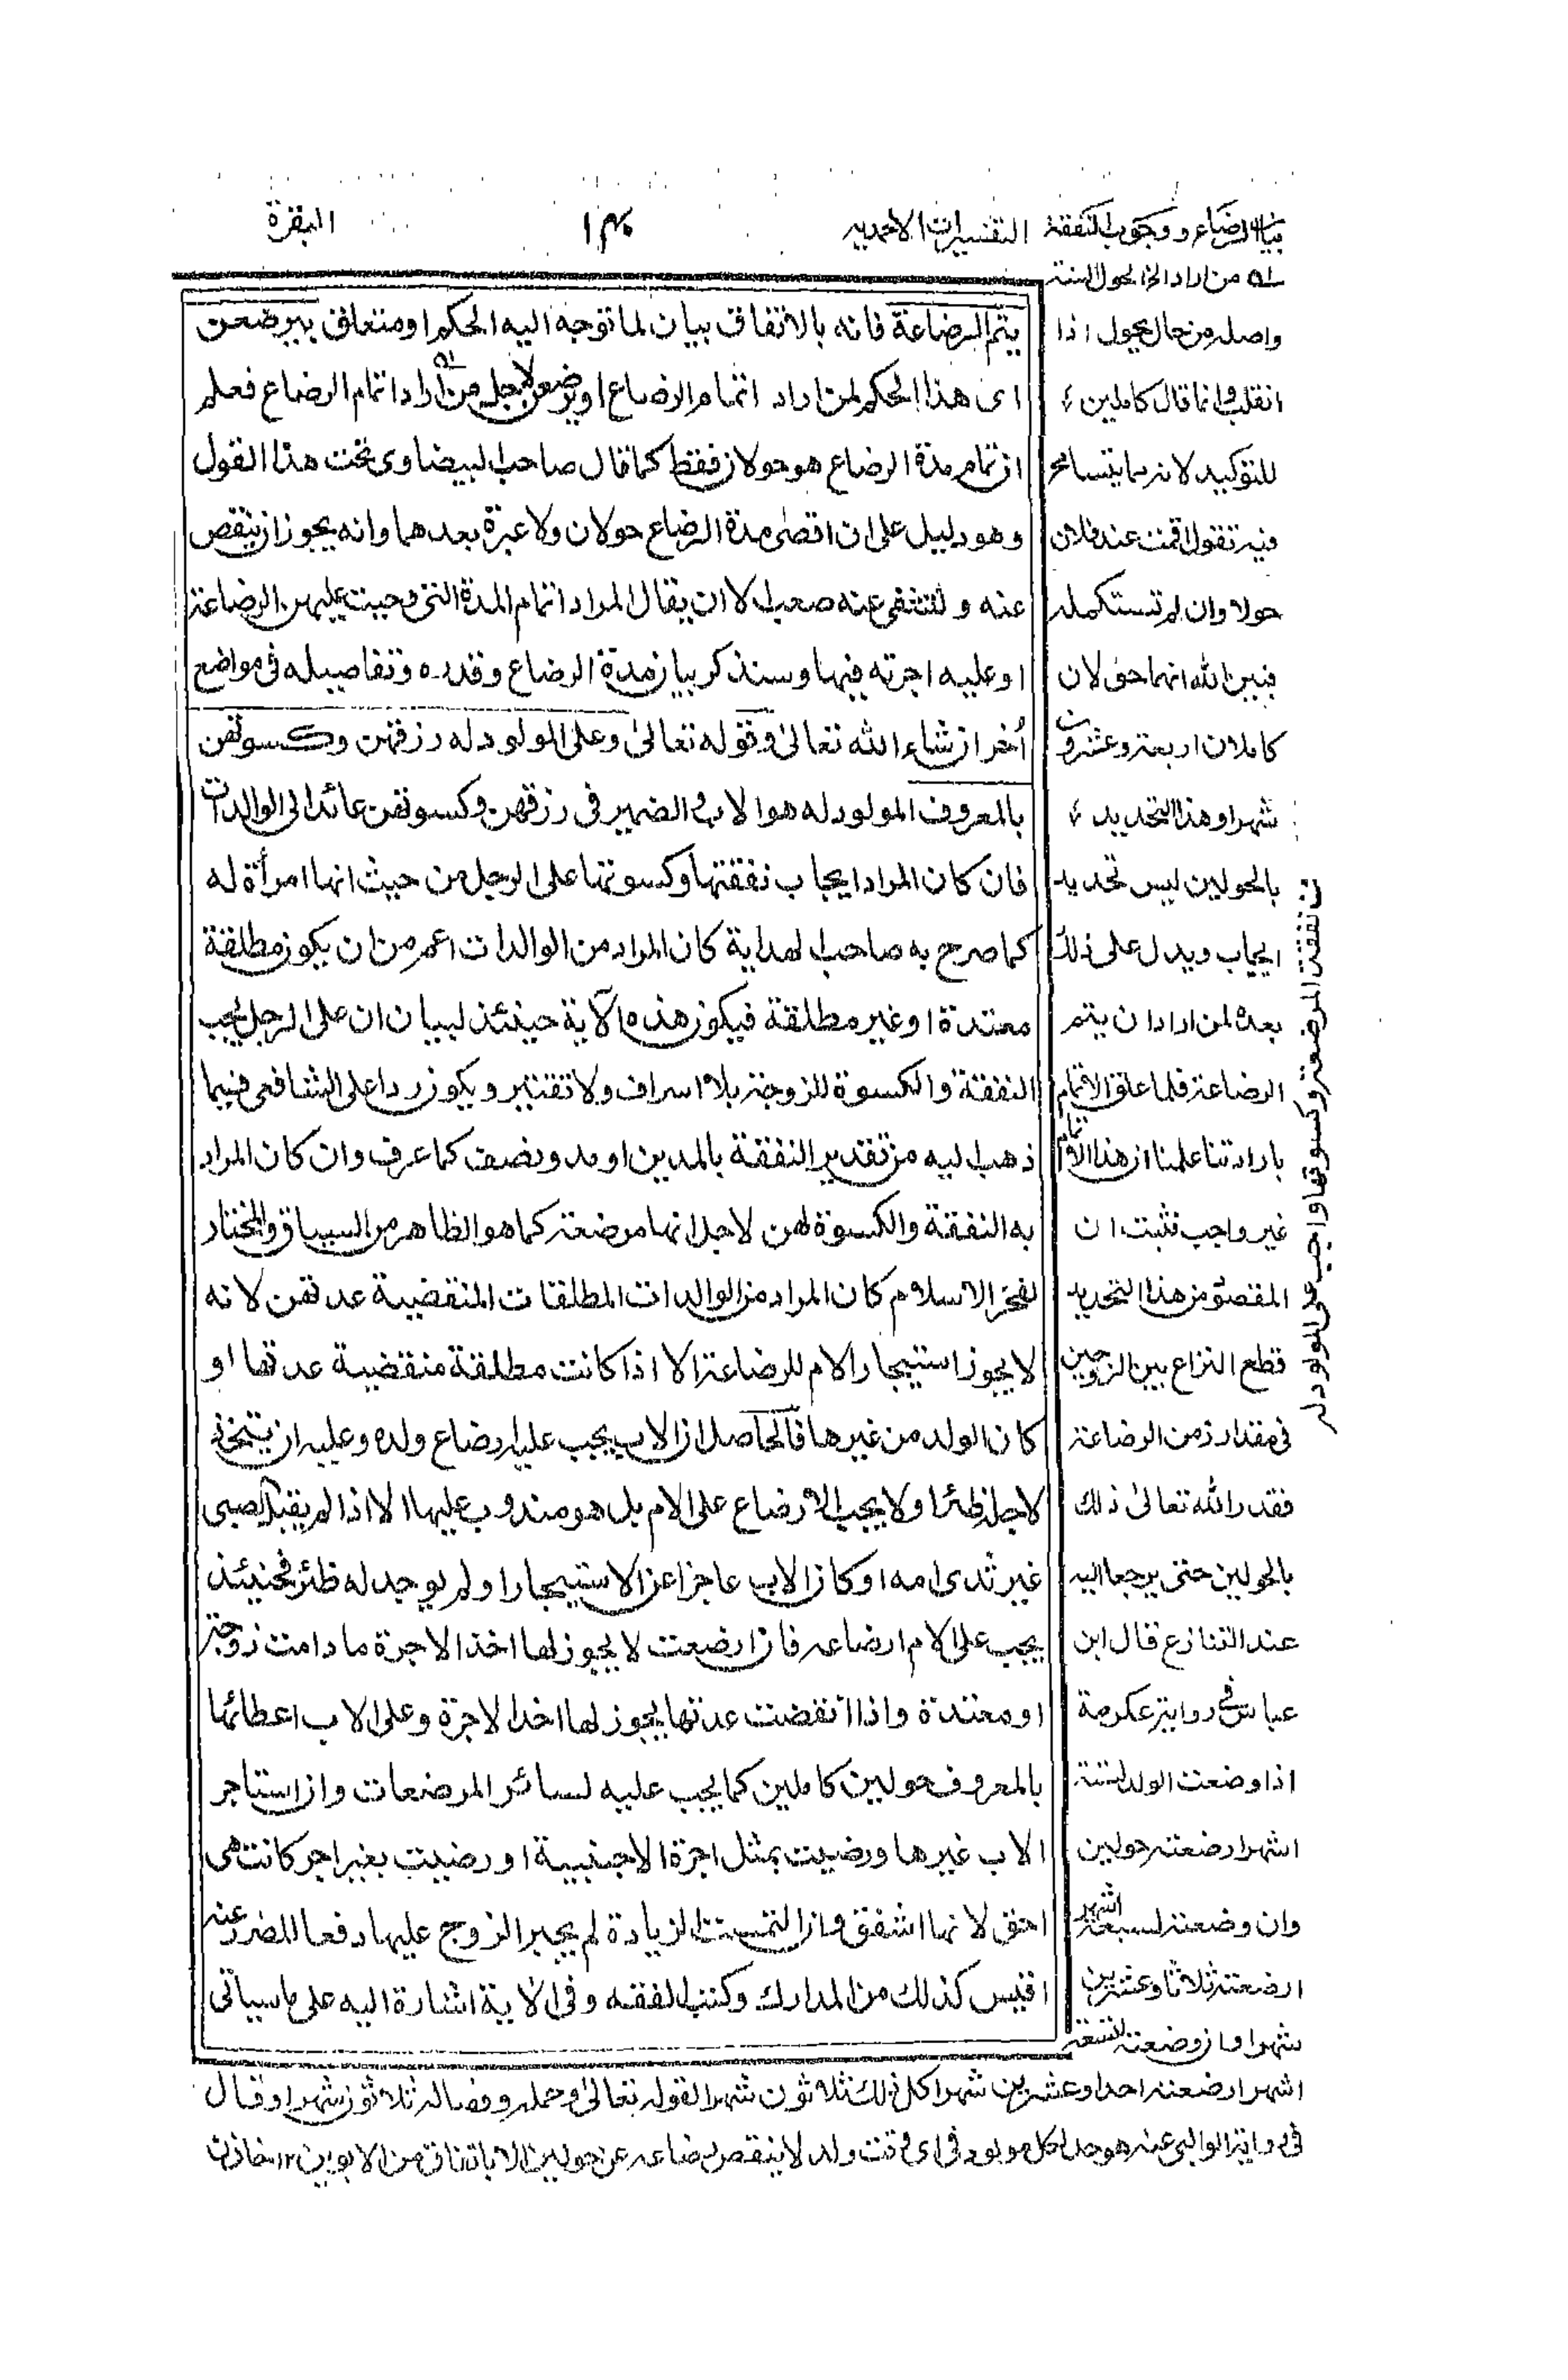 بيان الرضاع ووجوب النفقة
التفسيرات الاحمديه
١٣٠
البقرة
يتم الرضاعة فانه بالاتفاق بيان لما توجه اليه الحكم او متعلق بيرضعن
اى هذا الحكم لمن اراد اتمام الرضاع او يرضعن لاجل من اراد اتمام الرضاع فعلم
ان تمام مدة الرضاع هو حولان فقط كما قال صاحب البيضاوى تحت هذا القول
وهو دليل على ان اقصى مدة الرضاع حولان ولا عبرة بعدهما وانه يجوز ان ينقص
عنه والتفصى عنه صعب الا ان يقال المراد اتمام المدة التى وجبت عليهن الرضاعة
او عليه اجرته فيها وسنذكر بيان مدة الرضاع وقدره وتفاصيله فى مواضع
أخر ان شاء الله تعالىٰ وقوله تعالىٰ وعلى المولود له رزقهن وكسوتهن
بالمعروف المولود له هو الاب والضمير فى رزقهن وكسوتهن عائد الى الوالدات
فان كان المراد ايجاب نفقتها وكسوتها على الرجل من حيث انها امرأة له
كما صرح به صاحب الهداية كان المراد من الوالدات اعم من ان يكون مطلقة
معتدة او غير مطلقة فيكون هذه الآية حينئذ لبيان ان على الرجل يجب
النفقة والكسوة للزوجة بلا اسراف ولا تقتير ويكون ردا على الشافعى فيما
ذهب اليه من تقدير النفقة بالمدين او مد ونصف كما عرف وان كان المراد
به النفقة والكسوة لهن لاجل انها مرضعة كما هو الظاهر من السياق والمختار
لفخر الاسلام كان المراد من الوالدات المطلقات المنقضية عدتهن لانه
لا يجوز استيجار الام للرضاعة الا اذا كانت مطلقة منقضية عدتها او
كان الولد من غيرها فالحاصل ان الاب يجب عليه ارضاع ولده وعليه ان يتخذ
لاجله ظئرا ولا يجب الارضاع على الام بل هو مندوب عليها الا اذا لم يقبل الصبى
غير ثدى امه او كان الاب عاجزا عن الاستيجار او لم يوجد له ظئر فحينئذ
يجب على الام ارضاعه فان ارضعت لا يجوز لها اخذ الاجرة ما دامت زوجة
او معتدة واذا انقضت عدتها يجوز لها اخذ الاجرة وعلى الاب اعطائها
بالمعروف حولين كاملين كما يجب عليه لسائر المرضعات وان استاجر
الاب غيرها ورضيت بمثل اجرة الاجنبية او رضيت بغير اجر كانت هى
احق لانها اشفق وان التمست الزيادة لم يجبر الزوج عليها دفعا للضرر عنه
اقتبس كذلك من المدارك وكتب الفقه وفى الآية اشارة اليه على ما سياتى
له من اراد الخ الحول السنة
واصله من حال يحول اذا
انقلب وانما قال كاملين
للتوكيد لانه مما يتسامح
فيه تقول اقمت عند فلان
حولا وان لم تستكمله
فبين الله انهما حولان
كاملان اربعة وعشرون
شهرا وهذا التحديد
بالحولين ليس تحديد
ايجاب ويدل على ذلك
بعده لمن اراد ان يتم
الرضاعة فلما علق الاتمام
بارادتنا علمنا ان هذا الاتمام
غير واجب فثبت ان
المقصود من هذا التحديد
قطع النزاع بين الزوجين
فى مقدار زمن الرضاعة
فقدر الله تعالىٰ ذلك
بالحولين حتى يرجعا اليه
عند التنازع قال ابن
عباس فى رواية عكرمة
اذا وضعت الولد لستة
اشهر ارضعته حولين
وان وضعته لسبعة اشهر
ارضعته ثلاثا وعشرين
شهرا وان وضعته لتسعة
اشهر ارضعته احدا وعشرين شهرا كل ذلك ثلاثون شهرا لقوله تعالىٰ وحمله وفصاله ثلاثون شهرا وقال
فى رواية الوالبى عنه هو حد لكل مولود فى اى وقت ولد لا ينقص رضاعه عن حولين الا باتفاق من الابوين ١٢ خازن
ن نفقة المرضعة وكسوتها واجب على المولود له